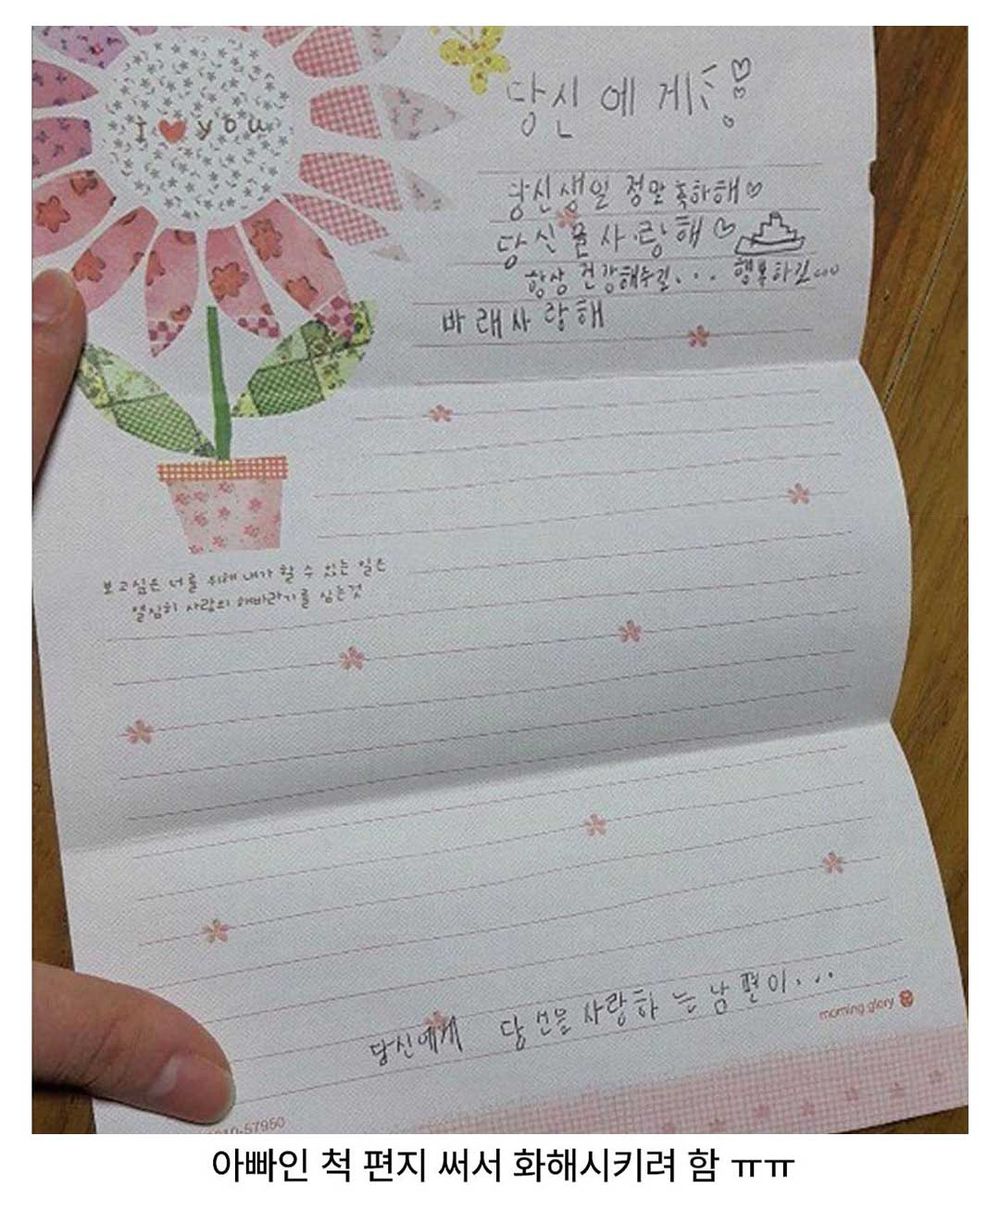 I ♥ you
당신에게♡
당신생일 정말 축하해♡
당신을사랑해♡
항상 건강해주길... 행복하길...
바래사랑해
보고싶은 너를 위해 내가 할 수 있는 일은
열심히 사랑의 해바라기를 심는것
당신에게 당신을 사랑하는남편이...
morning glory
10-57950
아빠인 척 편지 써서 화해시키려 함 ㅠㅠ